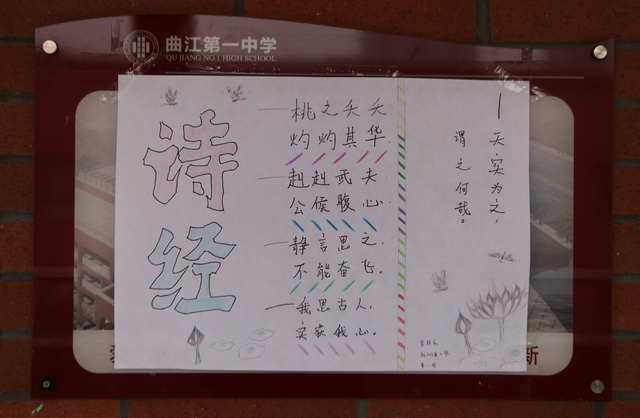 曲江第一中学
QU JIANG NO.1 HIGH SCHOOL
诗经
桃之夭夭
灼灼其华
赳赳武夫
公侯腹心
静言思之
不能奋飞。
我思古人，
实获我心。
天实为之，
谓之何哉。
新